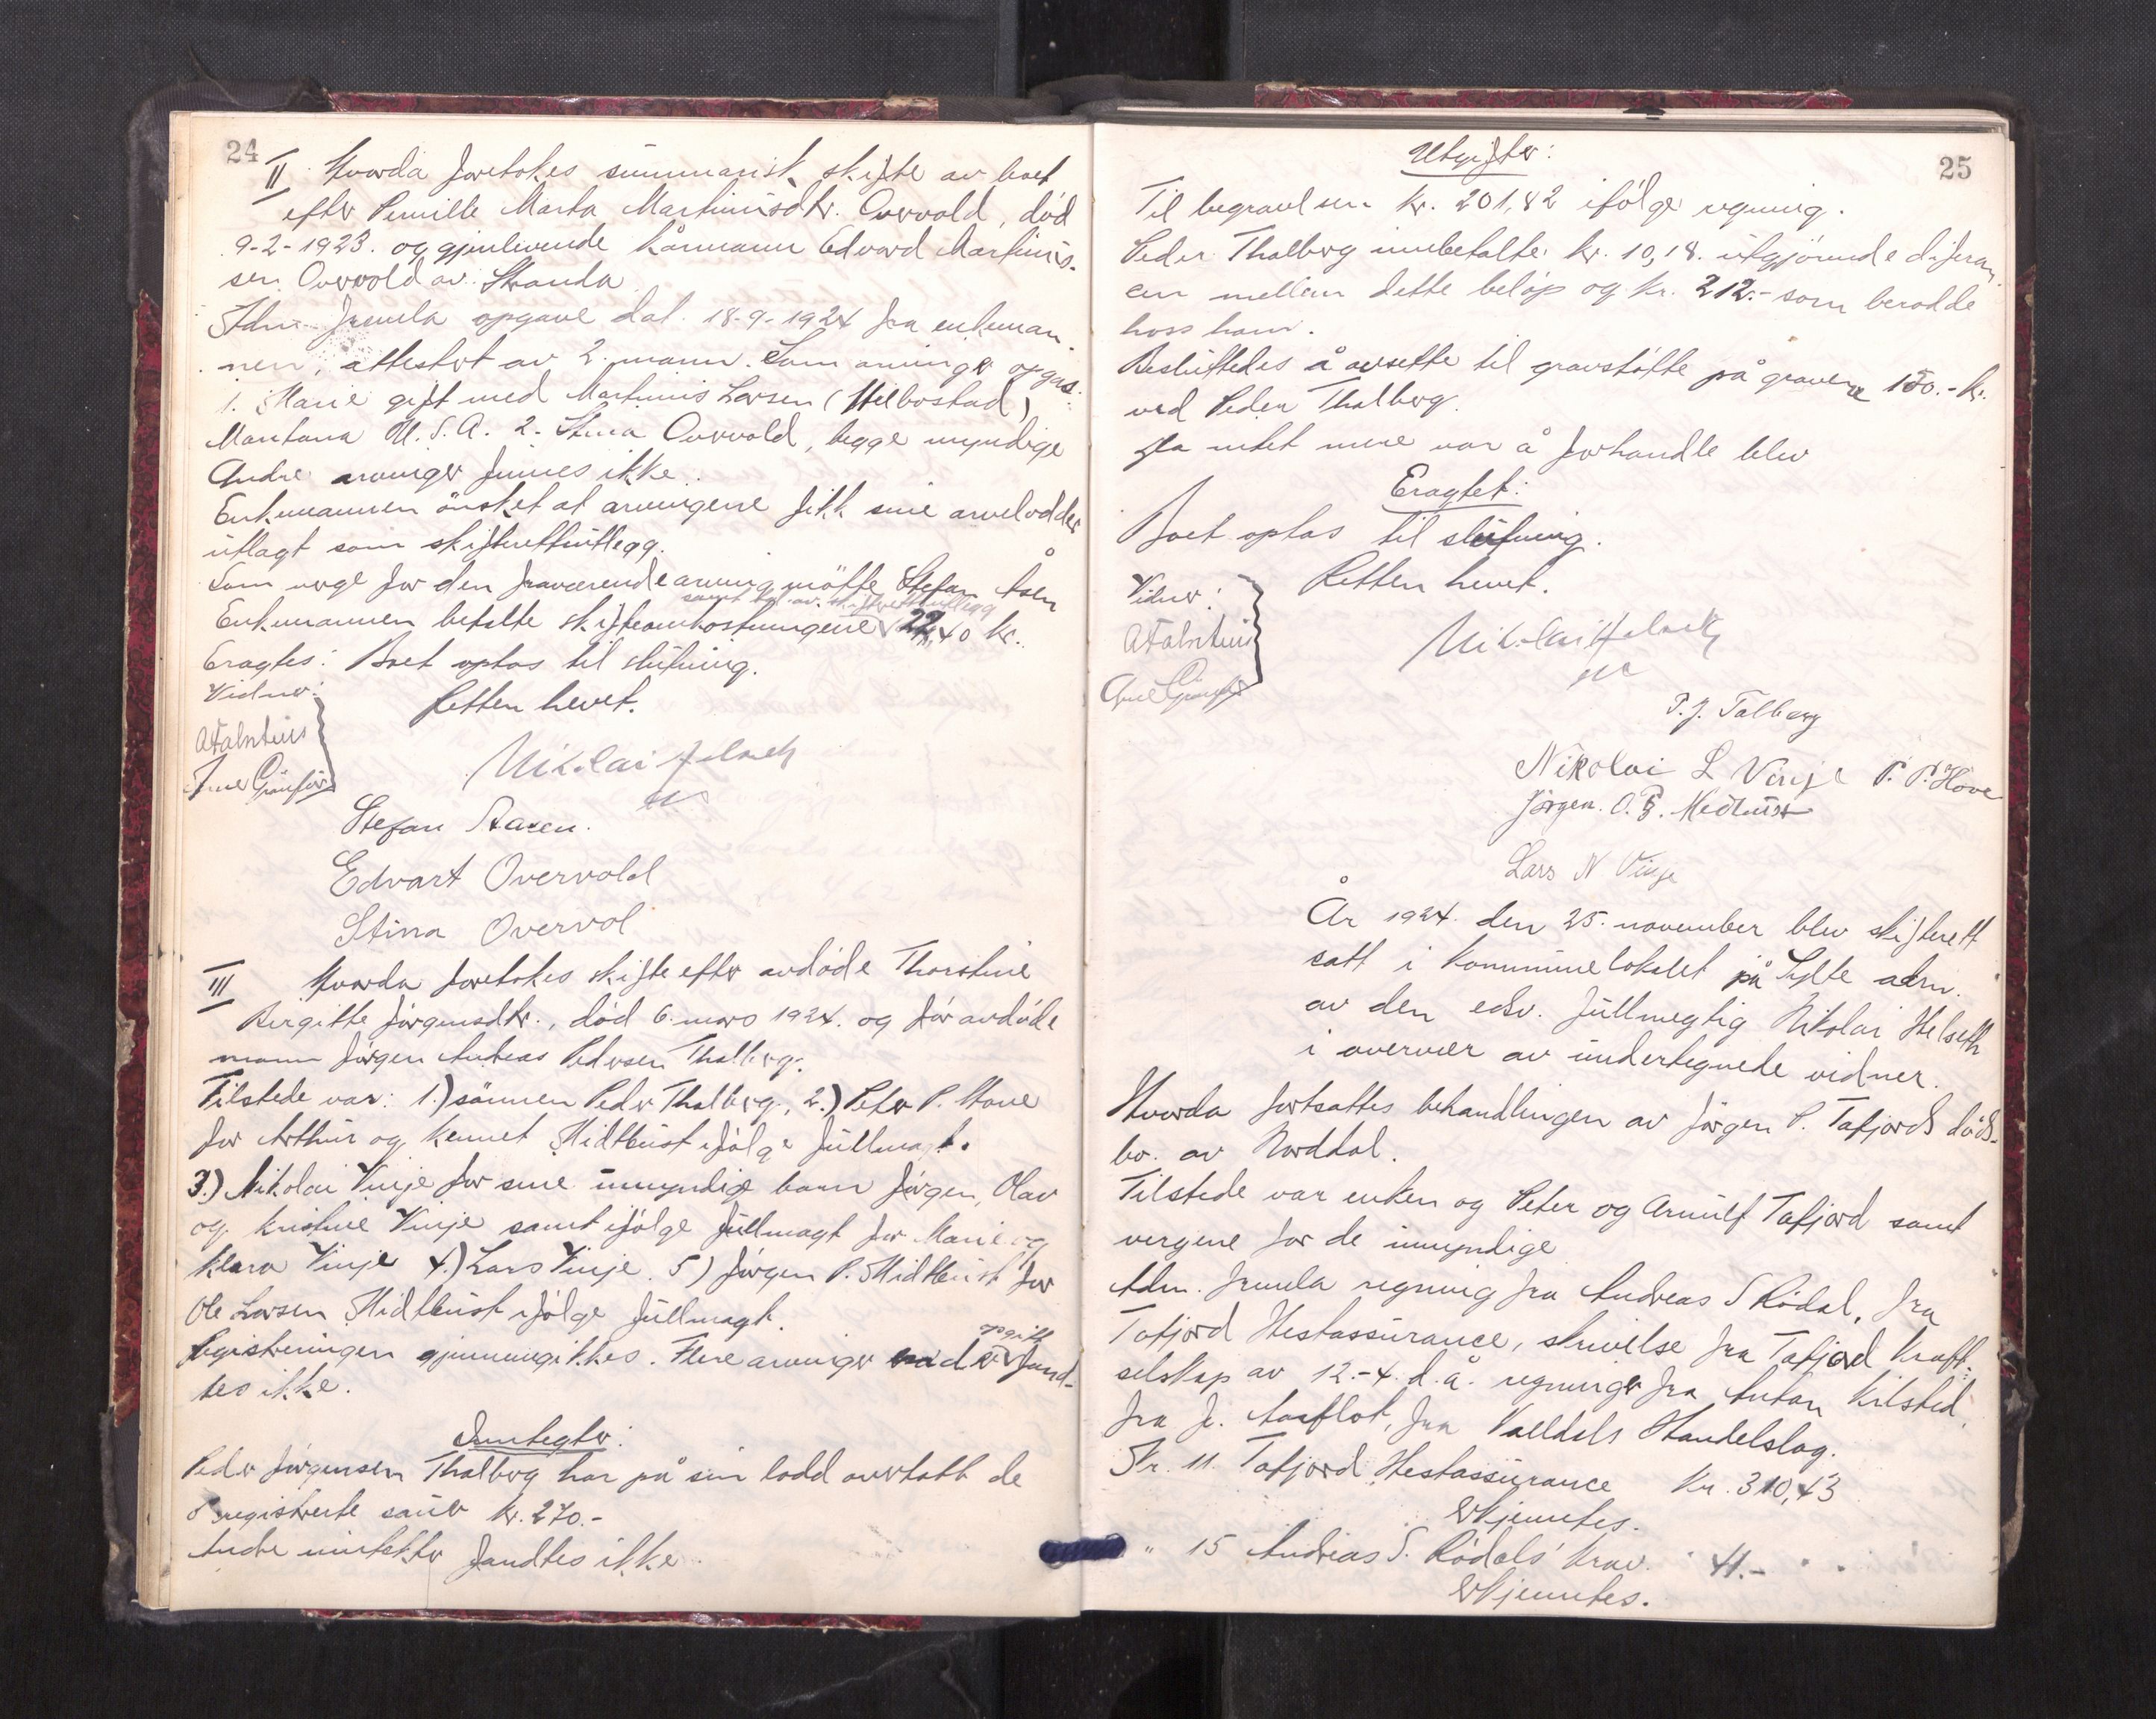 24
II Hvorda foretokes summarisk skifte av boet
efter Pernille Marta Martinusdtr. Overvold, død
9-2-1923. og gjenlevende kårmann Edvard Martinus-
sen Overvold av Stranda.
Adm fremla opgave dat. 18-9-1924 fra enkeman-
nen, attestert av 2. mann. Som arvinger opgas:
1. Marie gift med Martinus Larsen (Helbostad)
Montana U.S.A. 2. Stina Overvold, begge myndige
Andre arvinger finnes ikke.
Enkemannen ønsket at arvingene fikk sine arvelodder
utlagt som skifterettsutlegg.
Som verge for den fraværende arving møtte Stefan Åsen
samt av skifterettsutlegg
Enkemannen betalte skifteomkostningene 22,40 kr.
Eragtes: Boet optas til slutning.
Vidner: Retten hevet.
Nikolai Helseth
Stefan Aasen.
Edvart Overvold
Stina Overvol
III Hvorda foretokes skifte efter avdøde Thorstine
Birgitte Jørgensdtr., død 6. mars 1924. og før avdøde
mann Jørgen Andreas Pedersen Thalberg.
Tilstede var: 1.) sønnen Peder Thalberg, 2.) Peter P. Hove
for Arthur og Kennet Midtbust ifølge fullmagt.
3.) Nikolai Vinje for sine umyndige barn Jørgen, Olav
og Kristine Vinje samt ifølge fullmagt for Marie og
Klara Vinje 4.) Lars Vinje. 5) Jørgen P. Midtbust for
Ole Larsen Midtbust ifølge fullmagt.
opgitt
Registreringen gjennemgikkes. Flere arvinger end fand-
tes ikke.
Inntegter:
Peder Jørgensen Thalberg har på sin lodd overtatt de
registrerte sauer kr. 270.-
Andre inntekter fandtes ikke.
25
Utgifter:
Til begravelsen kr. 201,82 ifølge regning.
Peder Thalberg innbetalte kr. 10,18. utgjørende diferan-
cen mellem dette beløp og kr. 212.- som berodde
hoss ham.
Besluttedes å avsette til gravstøtte på gravene 150.- kr.
ved Peder Thalberg.
Da intet mere var å forhandle blev
Eragtet:
Boet optas til slutning.
Vidner: Retten hevet.
Nikolai Helseth
P. J. Talberg
Nikolai L Vinje P. P. Hove
Jørgen. O. P. Medbust
Lars N Vinje
År 1924. den 25. november blev skifterett
satt i kommunelokalet på Sylte adm.
av den edsv. fullmegtig Nikolai Helseth
i overvær av undertegnede vidner.
Hvorda fortsattes behandlingen av Jørgen P. Tafjords døds-
bo. av Norddal.
Tilstede var enken og Peter og Arnulf Tafjord samt
vergene for de umyndige
Adm. fremla regning fra Andreas S Rødal, fra
Tafjord Hestassurance, skrivelse fra Tafjord Kraft-
selskap av 12.-4. d. å. regninger fra Anton Kilsted,
fra J. Aasflot, fra Valldals Handelslag.
Nr. 11. Tafjord Hestassurance Kr. 310,43
Erkjenntes.
" 15 Andreas S. Rødals krav. " 41.-
Erkjenntes.